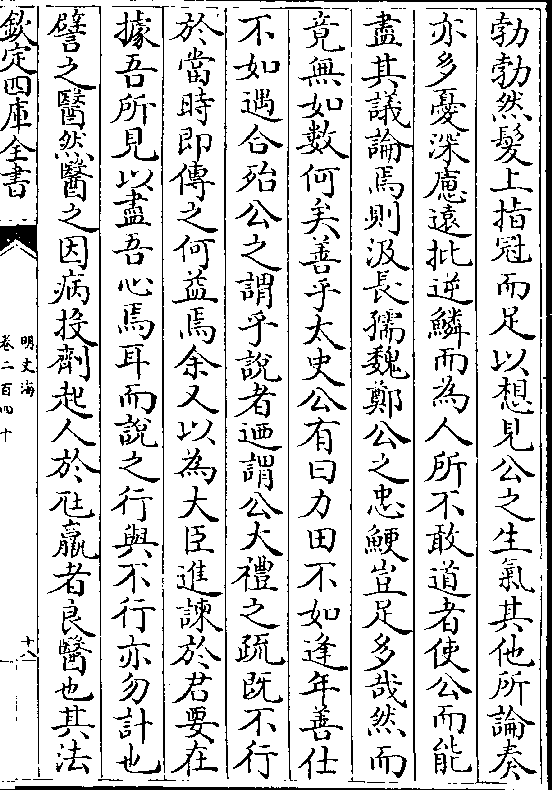 勃勃然髮上指冠而足以想見公之生氣其他所論奏
亦多憂深慮遠批逆鱗而為人所不敢道者使公而能
盡其議論焉則汲長孺魏鄭公之忠鯁豈足多哉然而
竟無如數何矣善乎太史公有曰力田不如逢年善仕
不如遇合殆公之謂乎說者迺謂公大禮之疏既不行
於當時即傳之何益焉余又以為大臣進諫於君要在
據吾所見以盡吾心焉耳而說之行與不行亦勿計也
譬之醫然醫之因病投劑起人於尫羸者良醫也其法
欽定四庫全書
明文海
卷二百四十
十八